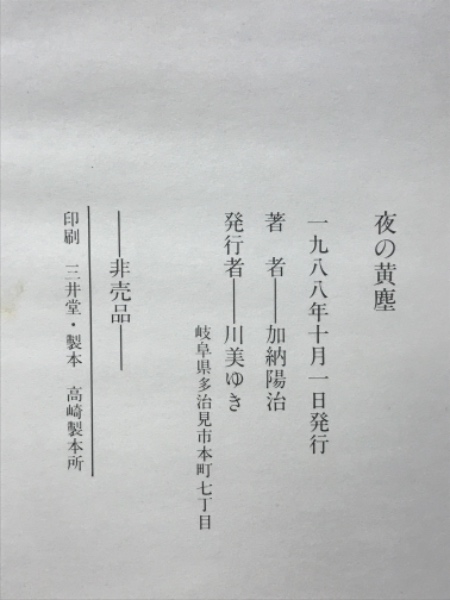 夜の黄塵
一九八八年十月一日発行
著　者――加納陽治
発行者――川美ゆき
岐阜県多治見市本町七丁目
――非売品――
印刷　三井堂・製本　高崎製本所